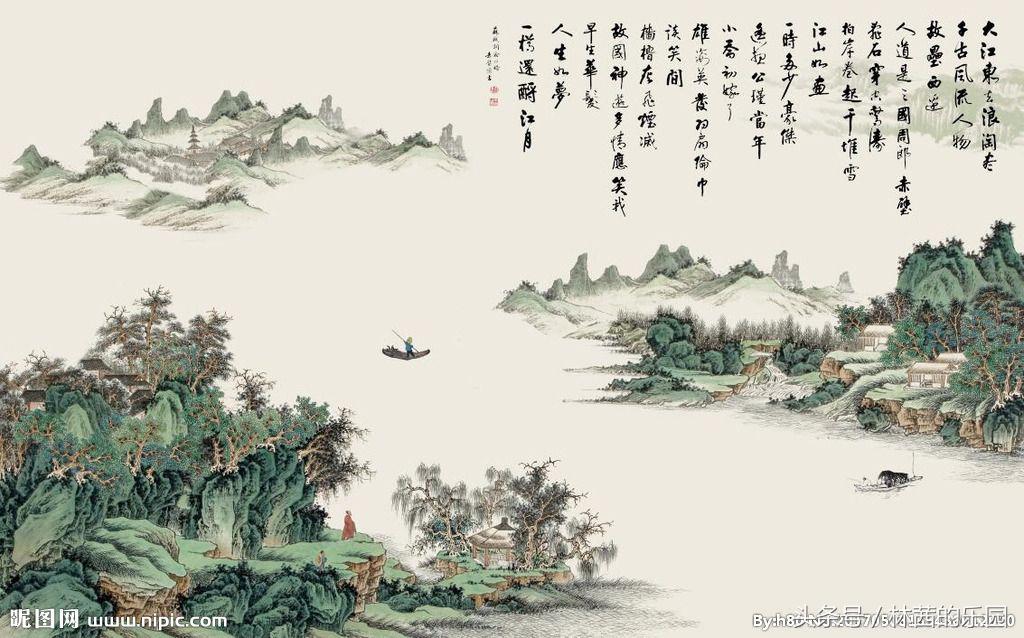 大江東去浪淘尽
千古风流人物
故壘西邊
人道是三國周郎赤壁
亂石穿空驚濤
拍岸卷起千堆雪
江山如画
一時多少豪傑
遥想公瑾當年
小喬初嫁了
雄姿英發羽扇綸巾
談笑間
檣櫓灰飛煙滅
故國神遊多情應笑我
早生華髮
人生如夢
一樽還酹江月
昵图网 www.nipic.com
头条号 / 林茜的乐园